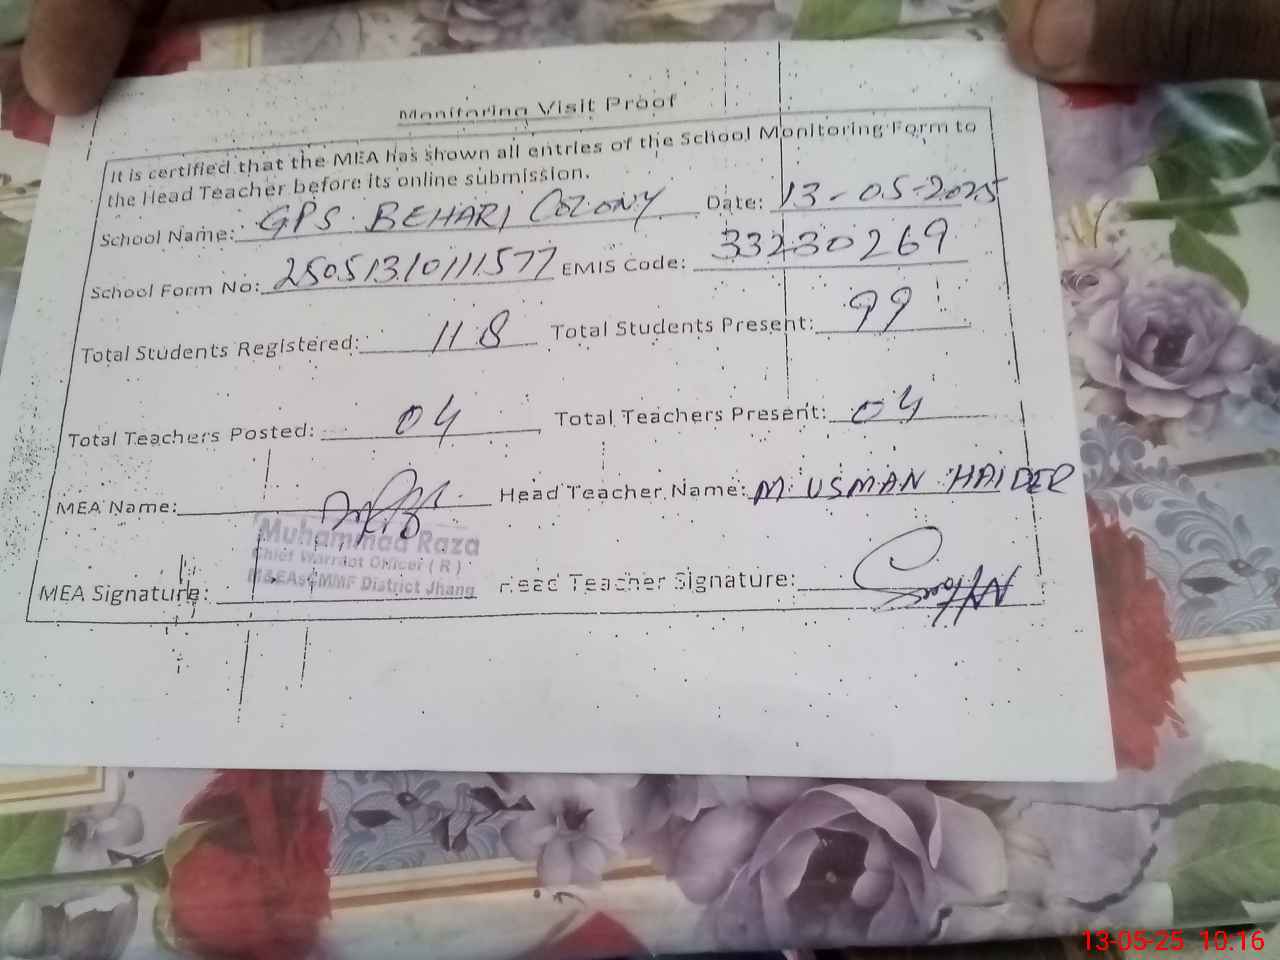 Monitoring Visit Proof
It is certified that the MEA has shown all entries of the School Monitoring Form to
the Head Teacher before its online submission.
School Name: GPS BEHARI COLONY Date: 13-05-2025
School Form No: 25051310111577 EMIS Code: 33230269
Total Students Registered: 118 Total Students Present: 99
Total Teachers Posted: 04 Total Teachers Present: 04
MEA Name: Head Teacher Name: M. USMAN HAIDER
Muhammad Raza
Chief Warrant Officer ( R )
District Jhang
MEA Signature: Head Teacher Signature:
13-05-25 10:16